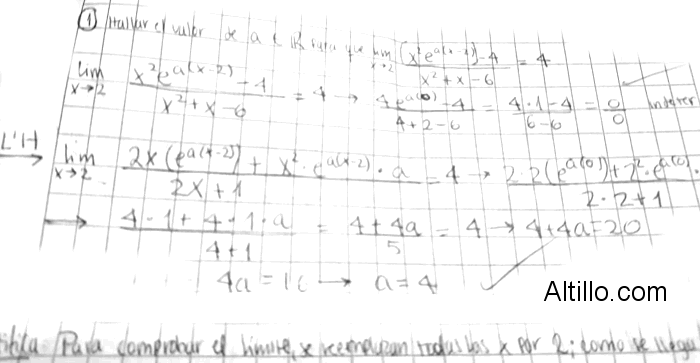 ① Hallar el valor de a ∈ ℝ para que lim x→2 (x²e^(a(x-2)) - 4)/(x² + x - 6) = 4
lim x→2 (x²e^(a(x-2)) - 4)/(x² + x - 6) = 4 → (4e^(a(0)) - 4)/(4 + 2 - 6) = (4·1 - 4)/(6 - 6) = 0/0
L'H → lim x→2 (2x(e^(a(x-2))) + x²·e^(a(x-2))·a)/(2x + 1) = 4 → (2·2(e^(a(0))) + 2²·e^(a(0))·)/(2·2 + 1)
→ (4·1 + 4·1·a)/(4 + 1) = (4 + 4a)/5 = 4 → 4 + 4a = 20
4a = 16 → a = 4
Altillo.com
Para comprobar el límite, se reemplazan todas las x por 2; como se